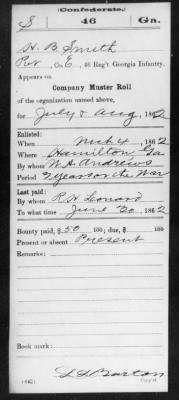 Confederate.
S 46 Ga.
H. B. Smith
Pvt, Co. E, 46 Reg't Georgia Infantry.
Appears on
Company Muster Roll
of the organization named above,
for July & Aug, 1862
Enlisted:
When Mch 4, 1862
Where Hamilton Ga
By whom W. A. Andrews
Period 2 years or the War
Last paid:
By whom R H Leonard
To what time June 30, 1862
Bounty paid, $ 50 100; due, $ 100
Present or absent Present
Remarks:
Book mark:
(642) L L Barton
Copyist.